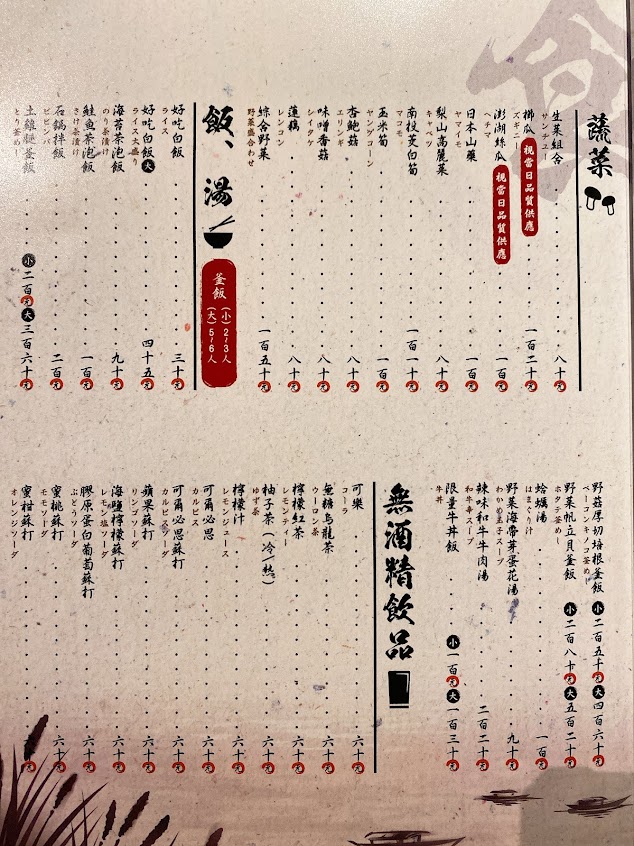 蔬菜
生菜組合 八十元
サンチュー
櫛瓜 視當日品質供應 一百二十元
ズギニー
澎湖絲瓜 視當日品質供應 一百元
ヘチマ
日本山藥 一百元
ヤマイモ
梨山高麗菜 八十元
キャベツ
南投茭白筍 一百一十元
マコモ
玉米筍 一百元
ヤングコーン
杏鮑菇 八十元
エリンギ
味噌香菇 八十元
シイタケ
蓮藕 八十元
レンコン
綜合野菜 一百五十元
野菜盛合わせ
飯、湯
釜飯
(小)2~3人
(大)5~6人
好吃白飯 三十元
ライス
好吃白飯 大 四十五元
ライス大盛り
海苔茶泡飯 九十元
のり茶漬け
鮭魚茶泡飯 一百元
さけ茶漬け
石鍋拌飯 二百元
ビビンバ
土雞腿釜飯 小 二百元 大 三百六十元
とり釜めし
野菇厚切培根釜飯 小 二百五十元 大 四百六十元
ベーコンキノコ釜めし
野菜帆立貝釜飯 小 二百八十元 大 五百二十元
ホタテ釜めし
蛤蠣湯 一百元
はまぐり汁
野菜海帶芽蛋花湯 九十元
わかめ弟子スープ
辣味和牛牛肉湯 二百二十元
和牛辛スープ
限量牛丼飯 小 一百元 大 一百三十元
牛丼
無酒精飲品
可樂 六十元
コーラ
無糖烏龍茶 六十元
ウーロン茶
檸檬紅茶 六十元
レモンティー
柚子茶(冷/熱) 六十元
ゆず茶
檸檬汁 六十元
レモンジュース
可爾必思 六十元
カルピス
可爾必思蘇打 六十元
カルピスソーダ
蘋果蘇打 六十元
リンゴソーダ
海鹽檸檬蘇打 六十元
レモン塩ソーダ
膠原蛋白葡萄蘇打 六十元
ぶどうソーダ
蜜桃蘇打 六十元
モモソーダ
蜜柑蘇打 六十元
オレンジソーダ